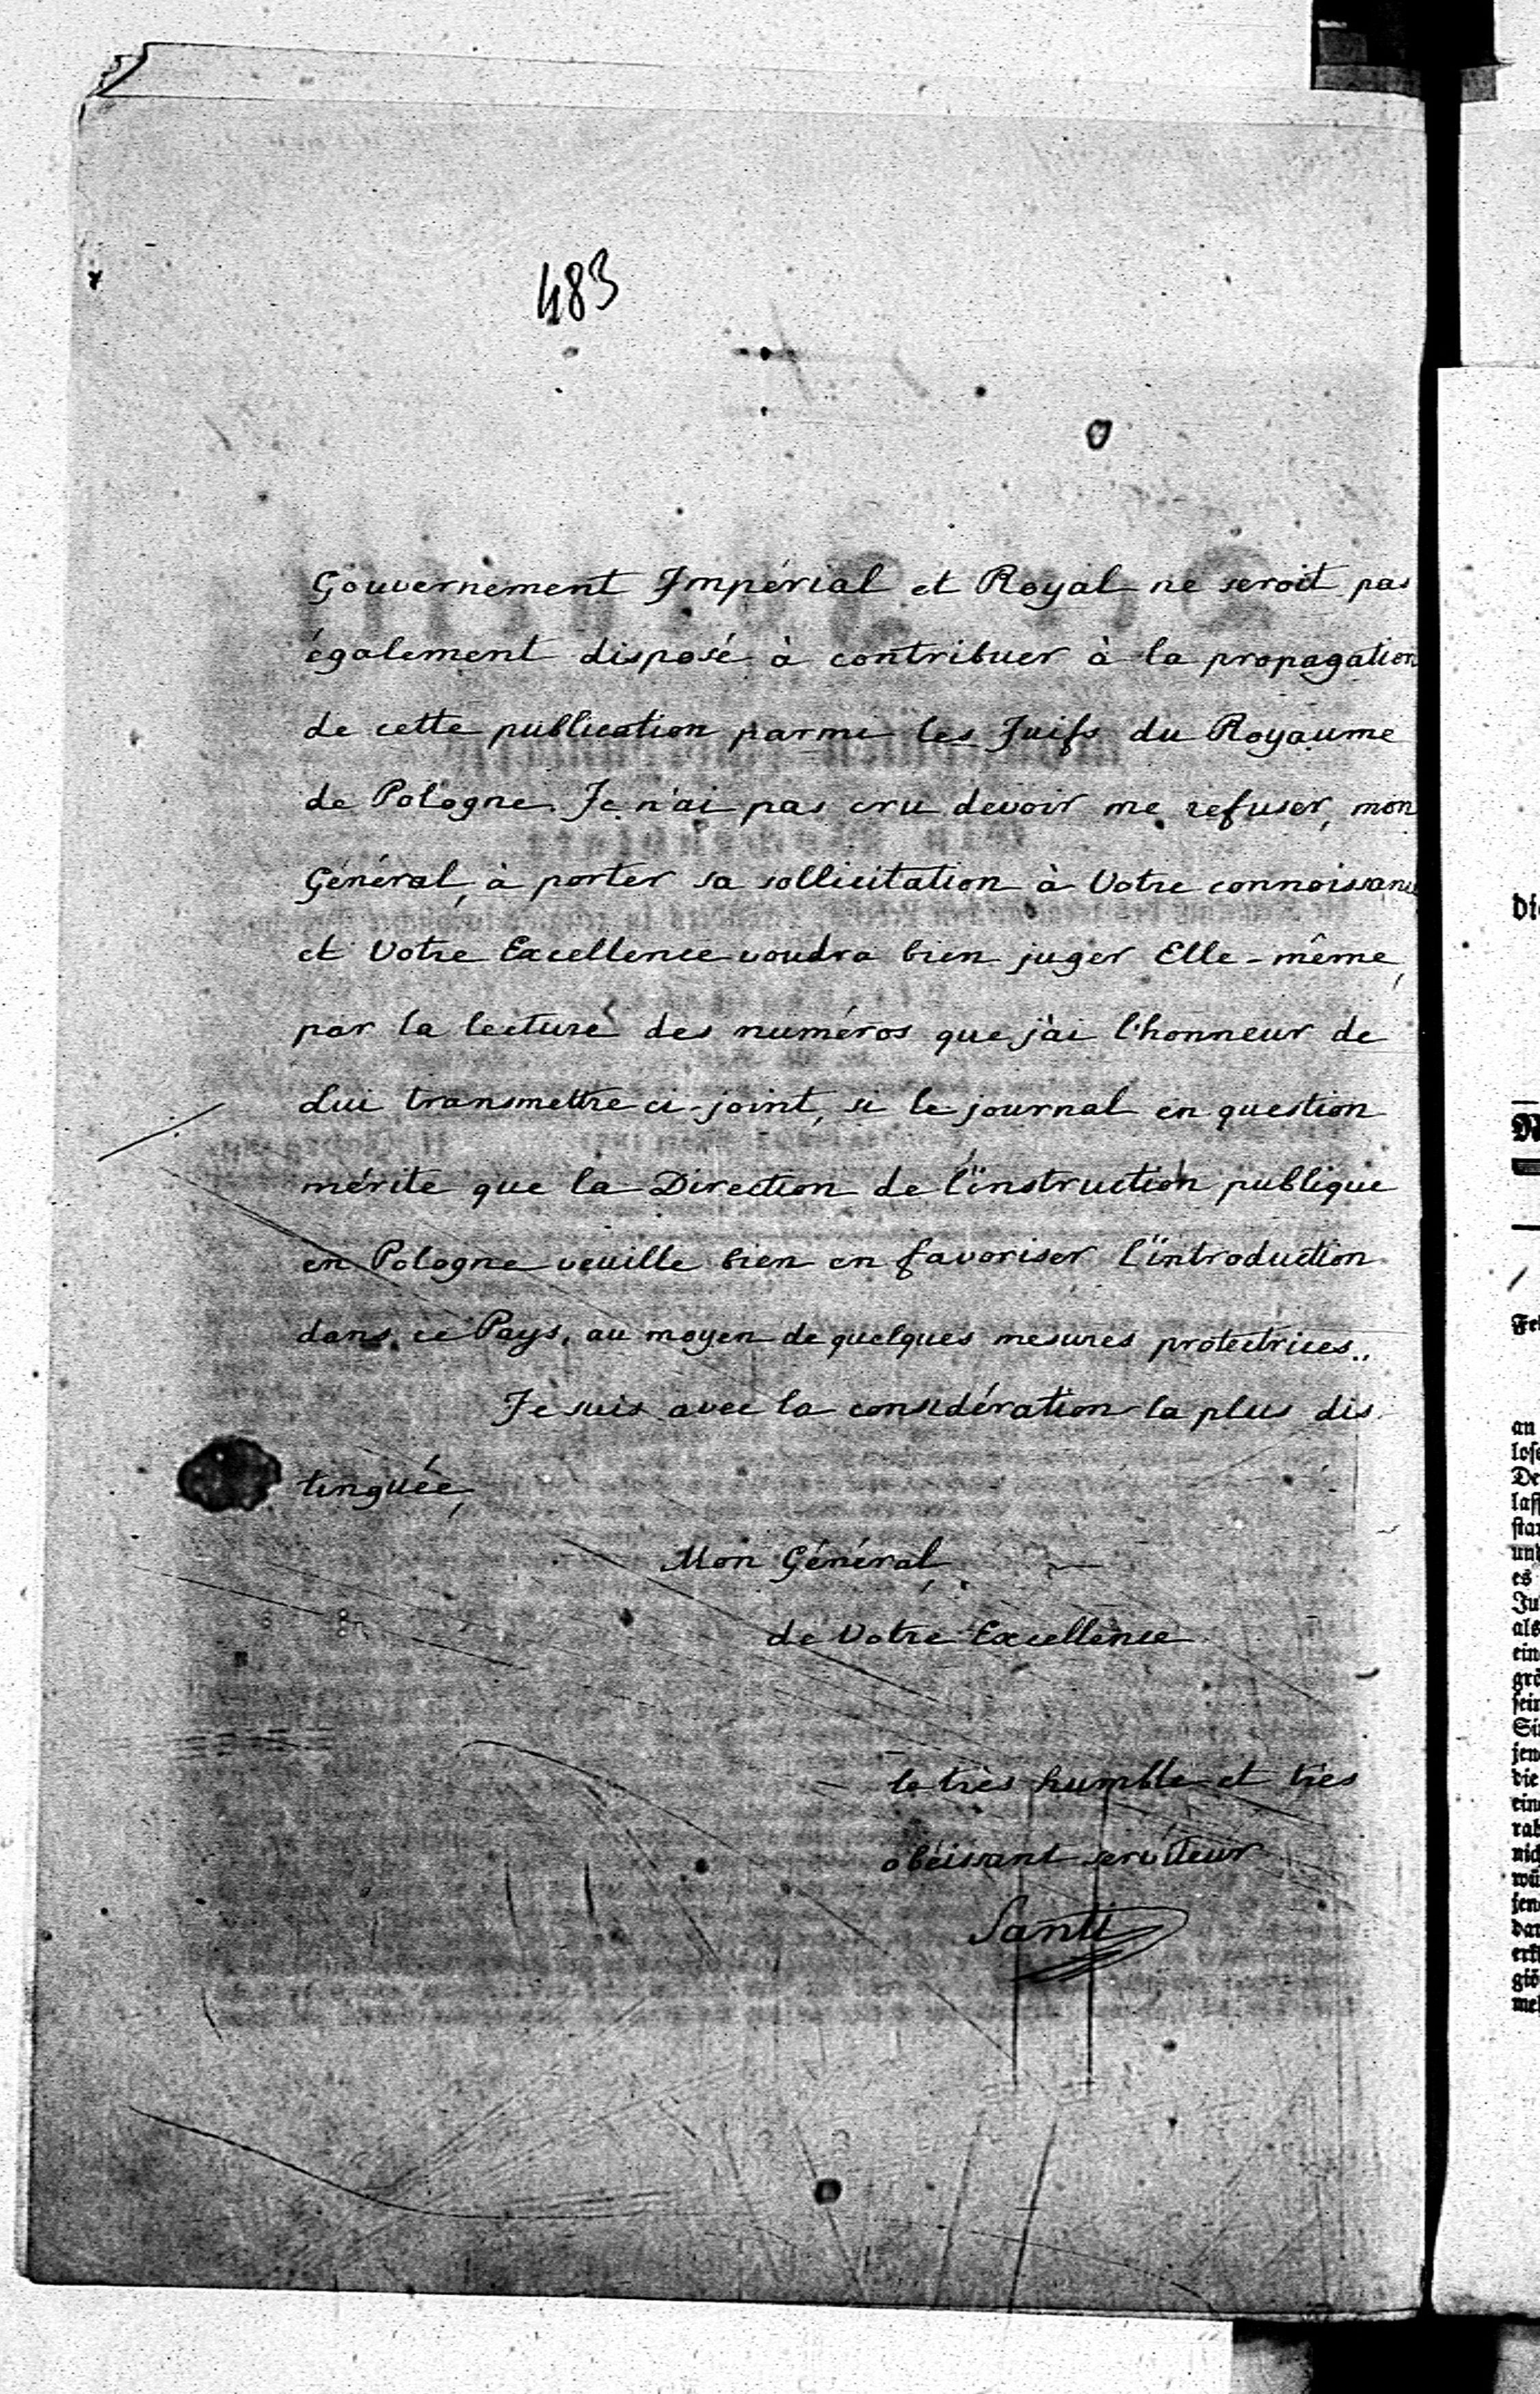 483
Gouvernement Impérial et Royal ne seroit pas
également disposé à contribuer à la propagation
de cette publication parmi les Juifs du Royaume
de Pologne. Je n'ai pas cru devoir me refuser, mon
Général, à porter sa sollicitation à Votre connoissance
et Votre Excellence voudra bien juger Elle-même,
par la lecture des numéros que j'ai l'honneur de
Lui transmettre ci-joint, si le journal en question
mérite que la Direction de l'instruction publique
en Pologne veuille bien en favoriser l'introduction
dans ce Pays, au moyen de quelques mesures protectrices.
Je suis avec la considération la plus dis
tinguée,
Mon Général,
de Votre Excellence
le très humble et très
obéissant serviteur
Santi